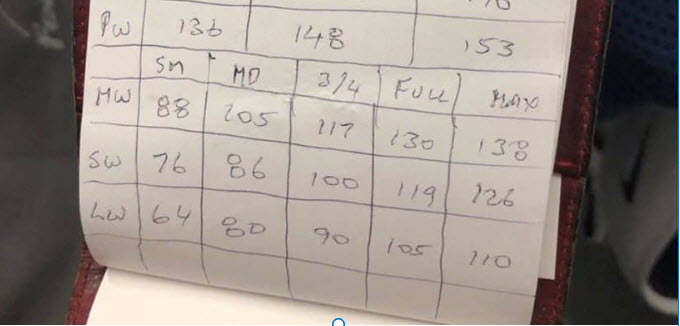 PW 136 148 153
SM MD 3/4 FULL MAX
MW 88 105 117 130 138
SW 76 86 100 119 126
LW 64 80 90 105 110